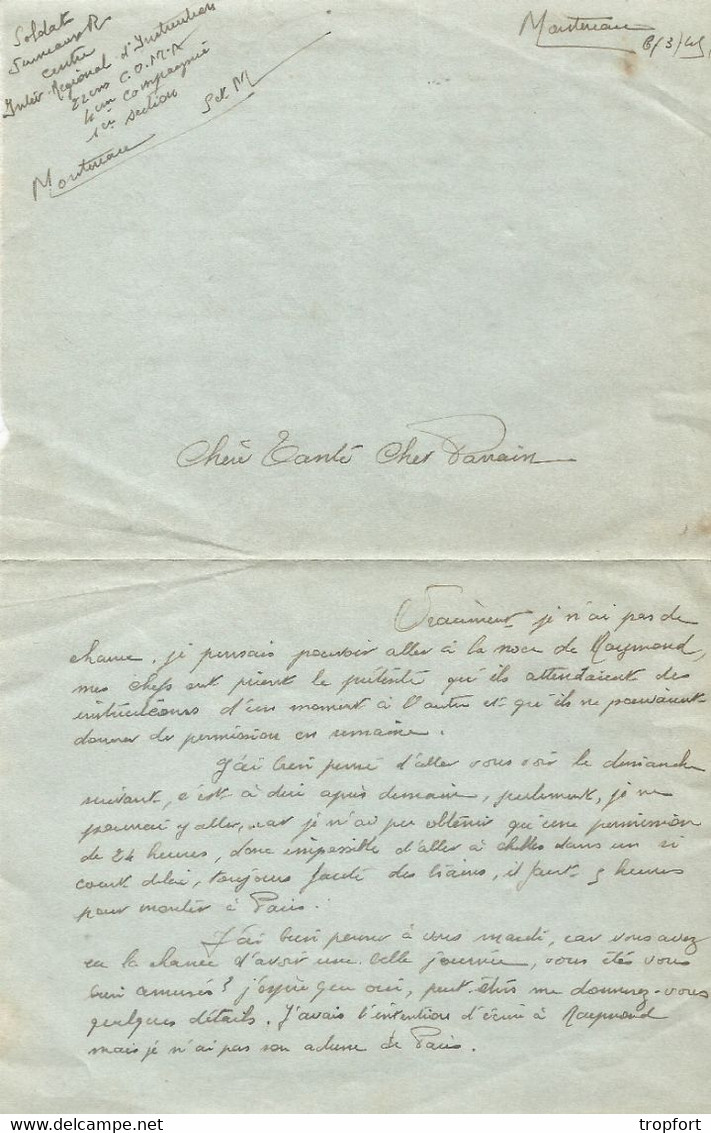 Soldat
Centre
Inter-Régional d'Instruction
22em C.O.M.A
4em Compagnie
1ère section
Montereau Set M
Montereau 6/3/45
Chère Tante Cher Parrain
Vraiment, je n'ai pas de
chance, je pensais pouvoir aller à la noce de Raymond,
mes chefs ont pient le pretente qu'ils attendaient des
instructeurs d'un moment à l'autre et qu'ils ne pouvaient
donner de permission en semaine.
J'ai bien pensé d'aller vous voir le dimanche
suivant, c'est à dire après demain, seulement, je ne
pourrai y aller, car je n'ai pu obtenir qu'une permission
de 24 heures, donc impossible d'aller à Chelles dans un si
court délai, toujours faute des trains, il faut 5 heures
pour monter à Paris.
J'ai bien penser à vous mardi, car vous avez
eu la chance d'avoir une belle journée, vous êtes vous
bien amusés? j'espère que oui, peut-être me donnerez-vous
quelques détails. J'avais l'intention d'écrire à Raymond
mais je n'ai pas son adresse de Paris.
DELCAMPE.NET
topfort